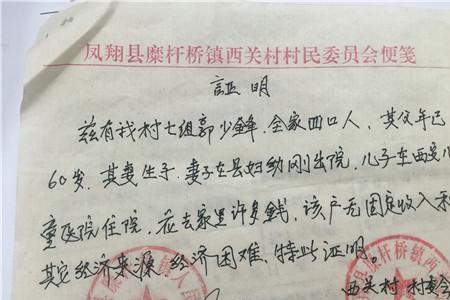 凤翔县糜杆桥镇西关村村民委员会便笺
証明
兹有我村七组郭少锋.全家四口人，其父年已
60岁.其妻生子.妻子在县妇幼刚出院，儿子在西安儿
童医院住院，花去家里许多錢，该户无固定收入和
其它经济来源 经济困难、特此证明。
西关村 村委会